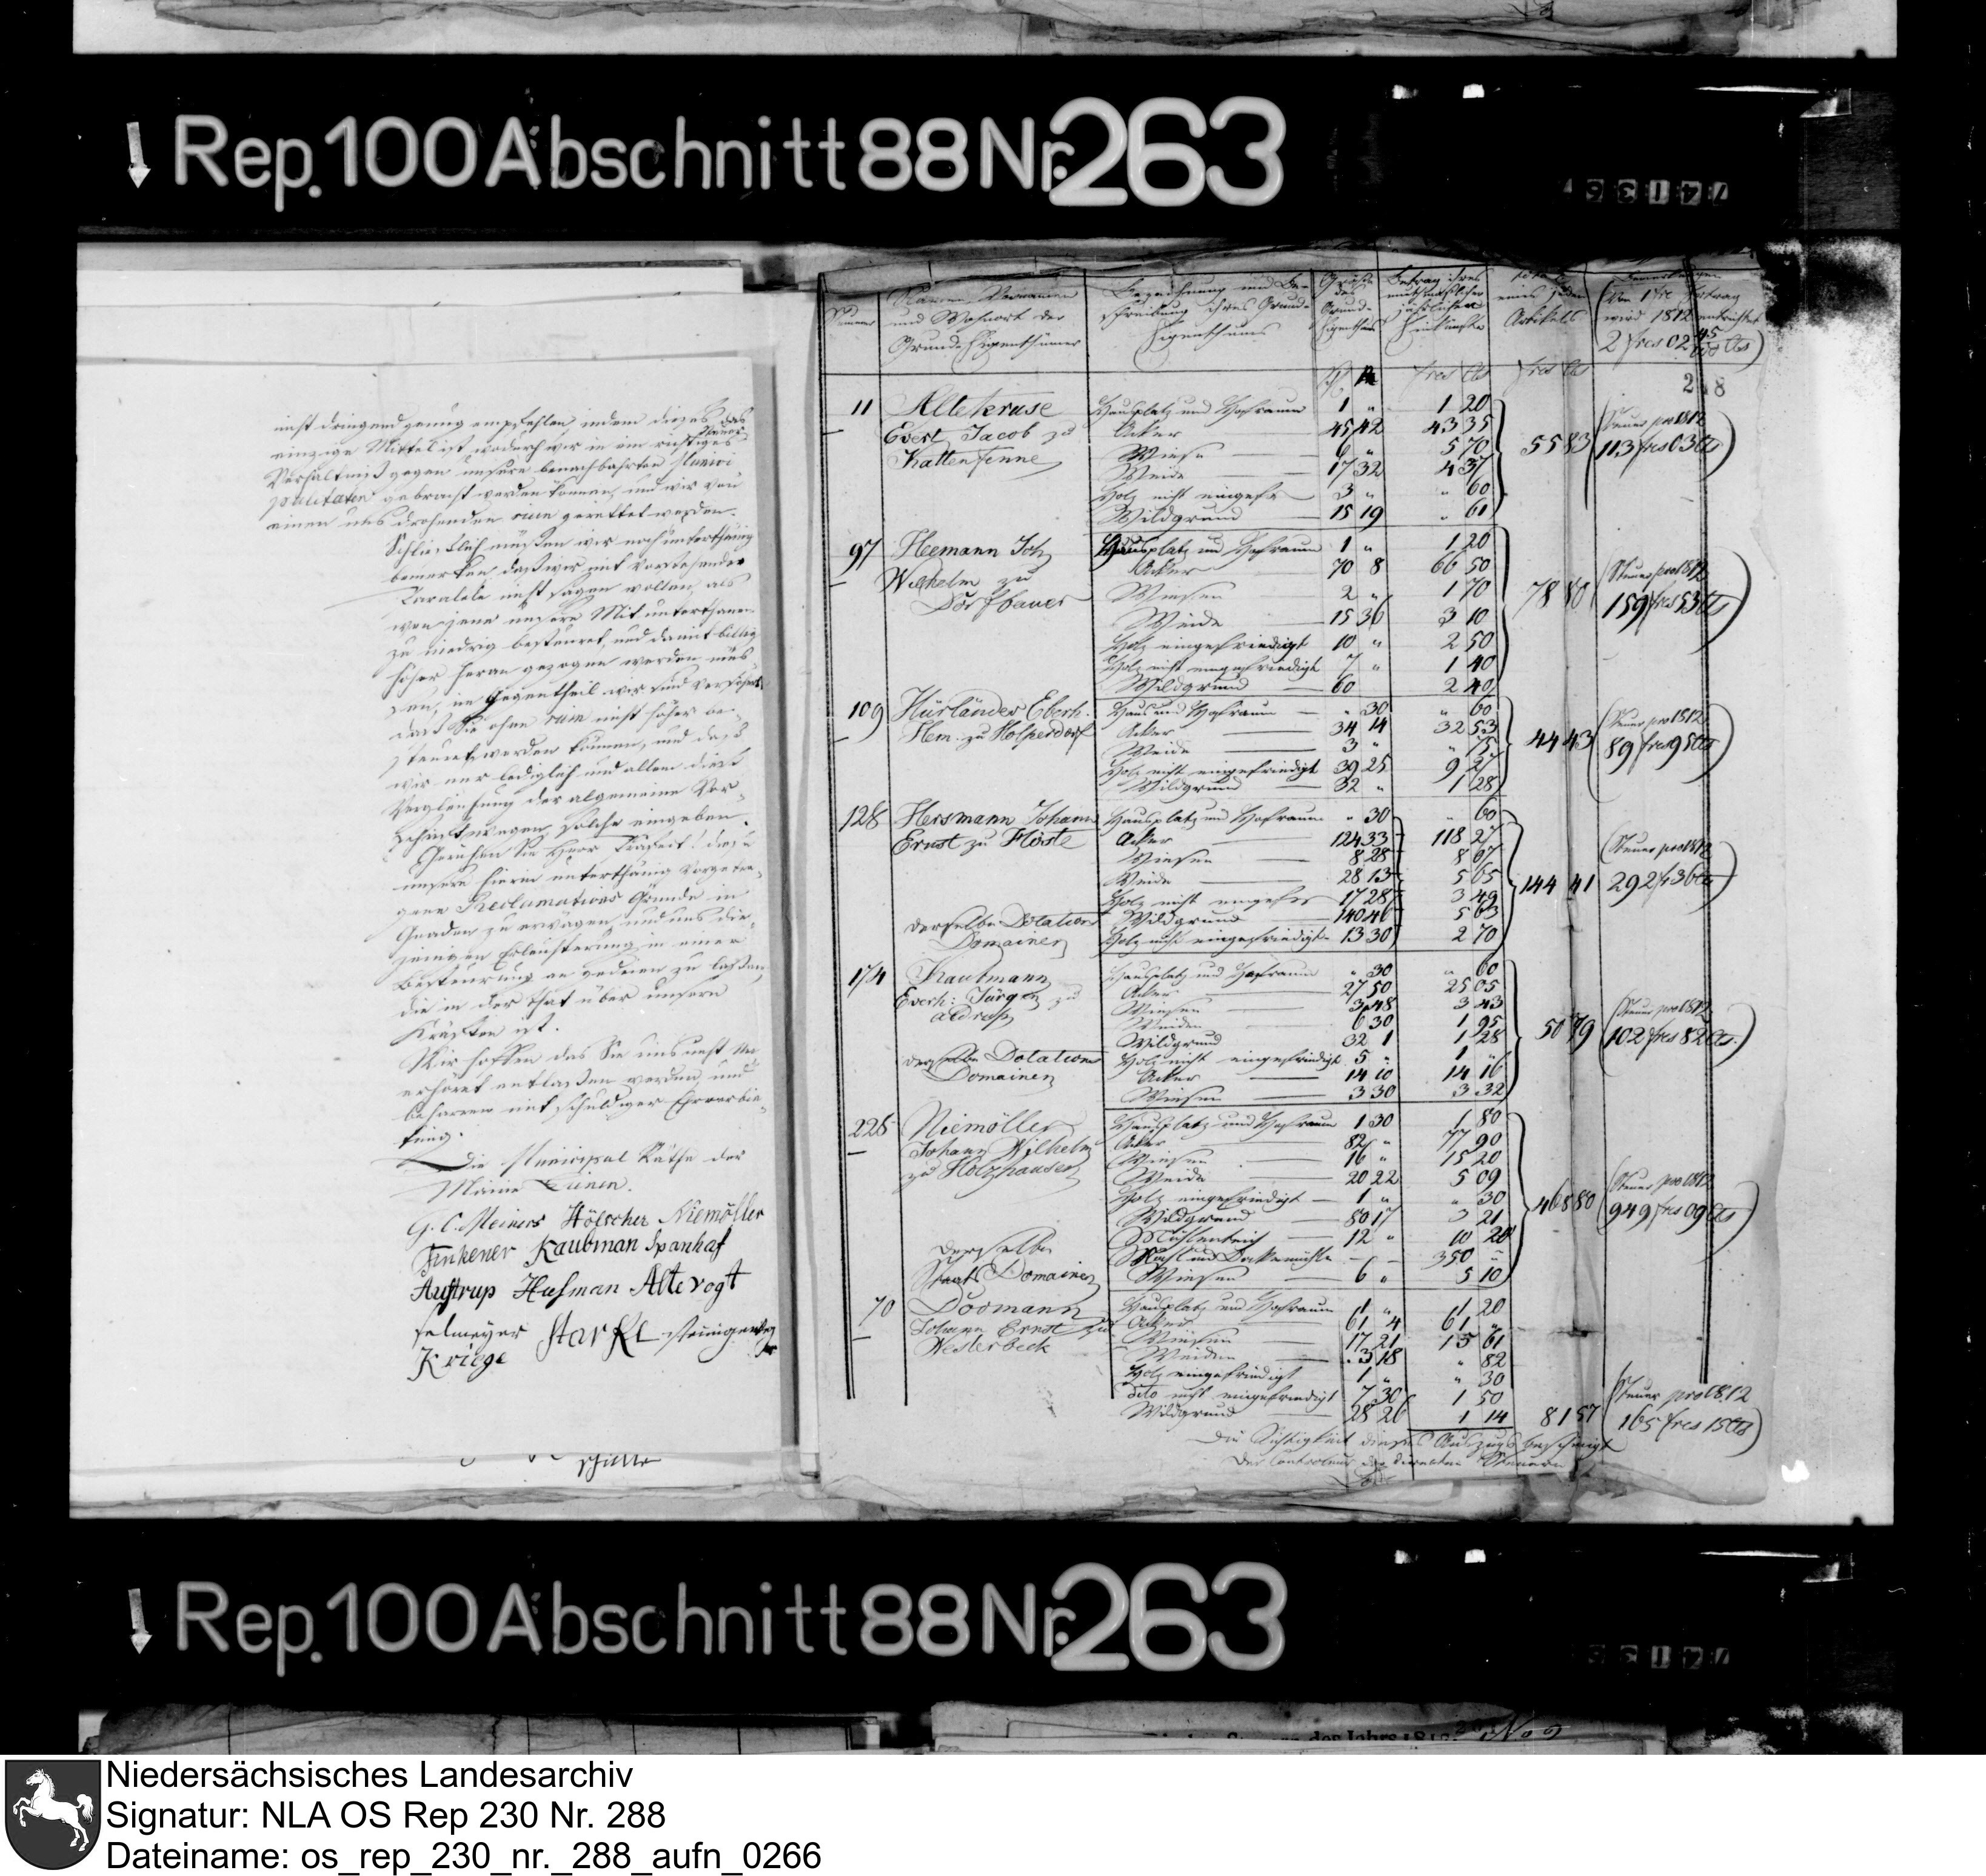 Rep. 100 Abschnitt 88 Nr. 263
nicht dringend genug empfehlen, indem dieses das
einzige Mittel ist, wodurch wir in ein richtiges
Verhältniß gegen unsere benachbahrten Munici
palitäten gebracht werden können, und wir von
einen uns drohenden ruin gerettet werden.
Schließlich müßen wir noch unterthänig
bemerken, daß wir mit vorstehender
Paralele nicht sagen wollen, als
wenn jene unsere Mitunterthanen
zu niedrig besteuret, und damit billig
höher heran gezogen werden müs¬
sen, im Gegentheil wir sind versichert
daß Sie ohne ruin nicht höher be¬
steuret werden können, und daß
wir nur lediglich und allein diese
Vergleichung der algemeine
solche eingeben.
Geruhen Sie Herr Präfect! diese
unsere hierin unterthänig vorgetra¬
gene Reclamations Gründe in
Gnaden zu erwägen, und uns die¬
jenigen Erleichterung in einer
Besteurung an gedeien zu laßen,
die in der That über unsere
Kräfte ist.
Wir hoffen das Sie uns nicht un
erhöret entlaßen werden, und
beharren mit schuldiger Ehrerbie¬
tung.
Die Municipal Räthe der
Mairie Lienen.
G. C. Meiners Hölscher Niemöller
Finkener Kaubman Spanhaf
Austrup Husman Altevogt
felmeyer Starke
Kriege
Namen Vornamen
und Wohnort der
Grund-Eigenthümer
Bezeichnung und Be¬
schreibung ihres Grund-
Eigenthums
Größe
des
Grund-
Eigenthums
Betrag ihres
muthmaßlicher
jährlicher
Einkünfte
eines jeden
Artikels
Bemerkungen
(Von 1 frc Ertrag
wird 1812 entrichtet
2 frcs 02 45/100 Cts)
frcs Cts frcs Cts
11 Altekruse Hausplatz und Hofraum 1 " 1 20
Evert Jacob zu Acker 45 42 43 35
Kattenfenne Wiese 6 " 5 70
Weide 17 32 4 37
Holz nicht eingefr 3 " " 60
Wildgrund 15 19 " 61
55 83 (Steuer pro 1812
113 frcs 03 Cts)
97 Heemann Joh Hausplatz und Hofraum 1 " 1 20
Wilhelm zu Acker 70 8 66 50
Dorfbauer Wiesen 2 " 1 70
Weide 15 36 3 10
Holz eingefriedigt 10 " 2 50
Holz nicht eingefriedigt 7 " 1 40
Wildgrund 60 2 40
78 80 (Steuer pro 1812
159 frcs 53 Cts)
109 Hürländer Eberh. Haus und Hofraum " 30 " 60
Hem. zu Holperdorf Acker 34 14 32 53
Weide 3 " " 75
Holz nicht eingefriedigt 39 25 9 27
Wildgrund 32 " 1 28
44 43 (Steuer pro 1812
89 frcs 95 Cts)
128 Hersmann Johann Hausplatz und Hofraum " 30 " 60
Ernst zu Höste Acker 124 33 118 27
Wiesen 8 28 8 07
Weide 28 13 5 65
Holz nicht eingefr 17 28 3 49
derselbe Dotations Wildgrund 140 46 5 63
Domainen Holz nicht eingefriedigt 13 30 2 70
144 41 (Steuer pro 1812
292 f 36 Cts)
174 Kaubmann Hausplatz und Hofraum " 30 " 60
Everh: Jürgen zu Acker 27 50 25 05
aldrup Wiesen 3 48 3 43
Weiden 6 30 1 95
Wildgrund 32 1 1 28
derselbe Dotations Holz nicht eingefriedigt 5 " 1 "
Domainen Acker 14 10 14 16
Wiesen 3 30 3 32
50 79 (Steuer pro 1812
102 frcs 82 Cts.)
225 Niemöller Hausplatz und Hofraum 1 30 1 80
Johann Wilhelm Acker 82 " 77 90
zu Holzhausen Wiesen 16 " 15 20
Weide 20 22 5 09
Holz eingefriedigt 1 " " 30
Wildgrund 80 17 3 21
Mühlenteich 12 " 10 20
derselbe Mahl und Bockemühle - - 350 "
Staats Domainen Wiesen 6 " 5 10
468 80 (Steuer pro 1812
949 frcs 09 Cts)
70 Doomann Hausplatz und Hofraum 1 " 1 20
Johann Ernst zu Acker 61 4 61 "
Westerbeck Wiesen 17 21 15 61
Weiden 3 18 " 82
Holz eingefriedigt 1 " " 30
dito nicht eingefriedigt 7 30 1 50
Wildgrund 28 26 1 14
81 57 (Steuer pro 1812
165 frcs 15 Cts)
Die Richtigkeit dieses Auszugs bescheinigt
Der Controleur der directen Steuern
Rep. 100 Abschnitt 88 Nr. 263
Niedersächsisches Landesarchiv
Signatur: NLA OS Rep 230 Nr. 288
Dateiname: os_rep_230_nr._288_aufn_0266